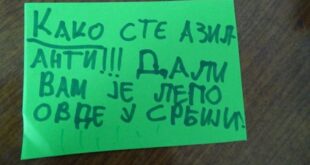 КАКО СТЕ АЗИЛ-
АНТИ!!! ДАЛИ
ВАМ ЈЕ ЛЕПО
ОВДЕ У СРБИЈИ.